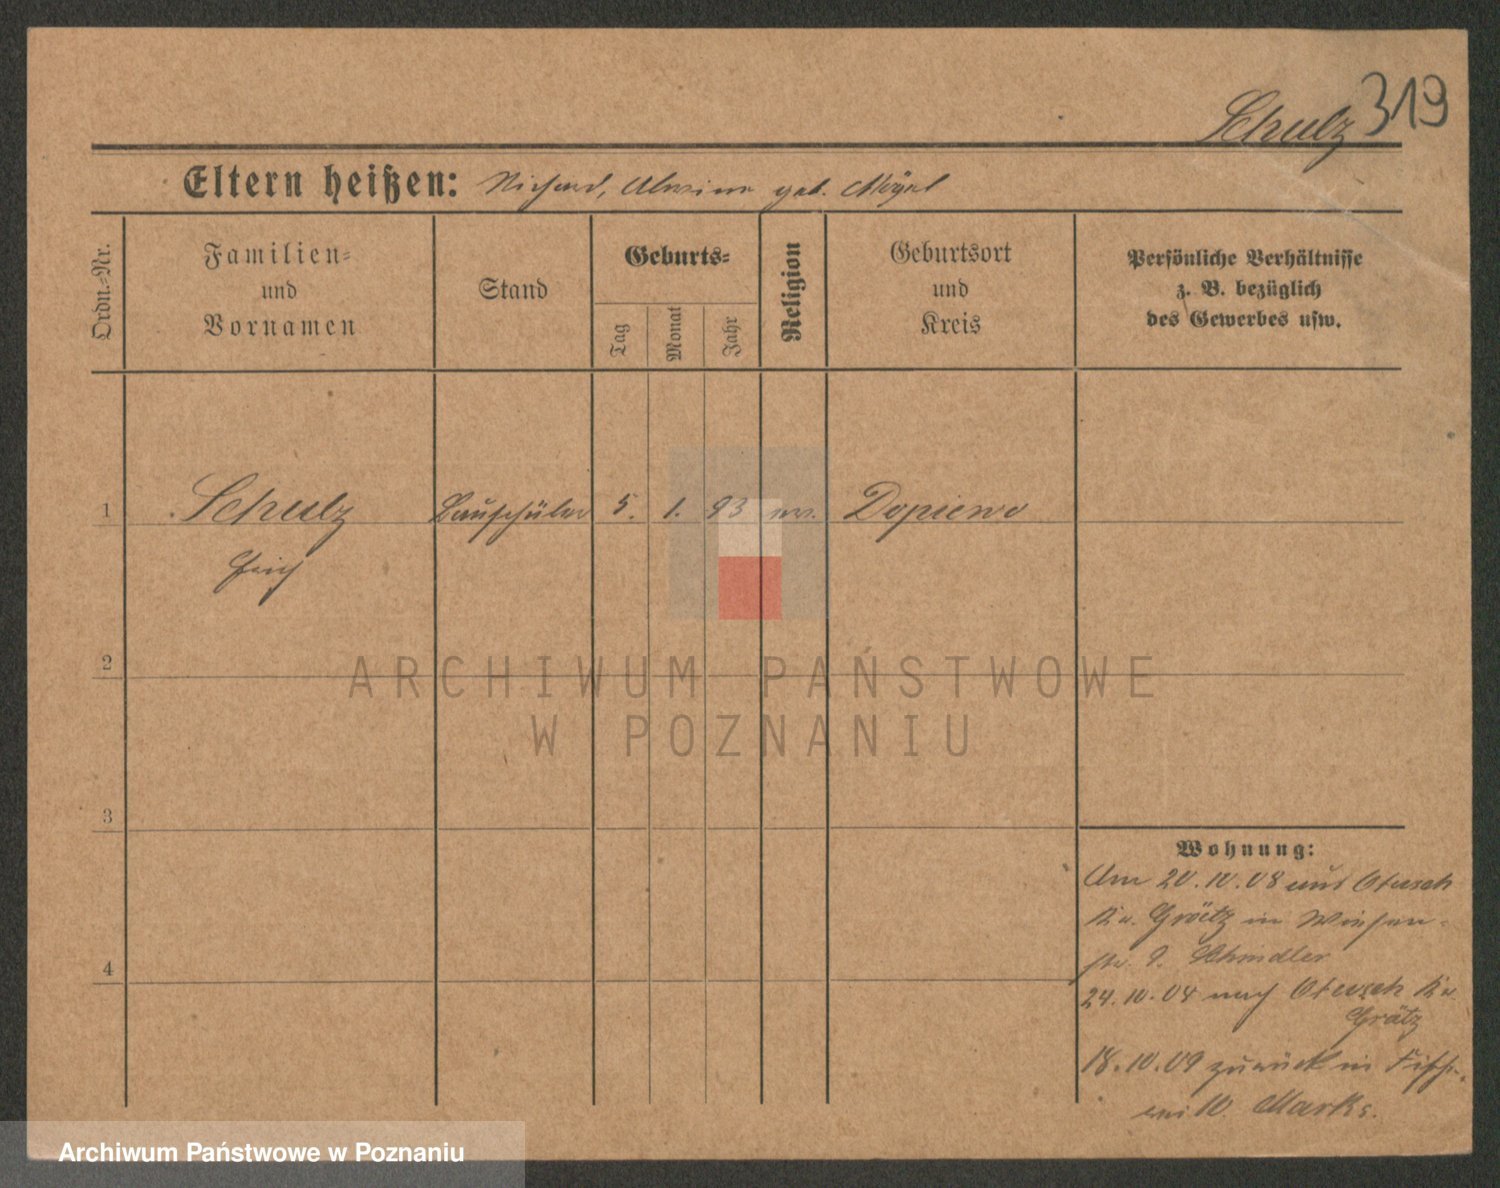 Schulz 319
Eltern heißen: Richard, Alwine geb. Mögel
Ordn.-Nr.
Familien-
und
Vornamen
Stand
Geburts-
Tag
Monat
Jahr
Religion
Geburtsort
und
Kreis
Persönliche Verhältnisse
z. B. bezüglich
des Gewerbes usw.
1 Schulz Bauschüler 5. 1. 93 ev. Dopiewo
Erich
2
3
4
Wohnung:
Am 20.10.08 aus Otusch
Kr. Grätz in Wiesen-
str. 9. Schindler
24.10.04 nach Otusch Kr.
Grätz
18.10.09 zurück in
10 Marks.
ARCHIWUM PAŃSTWOWE
W POZNANIU
Archiwum Państwowe w Poznaniu